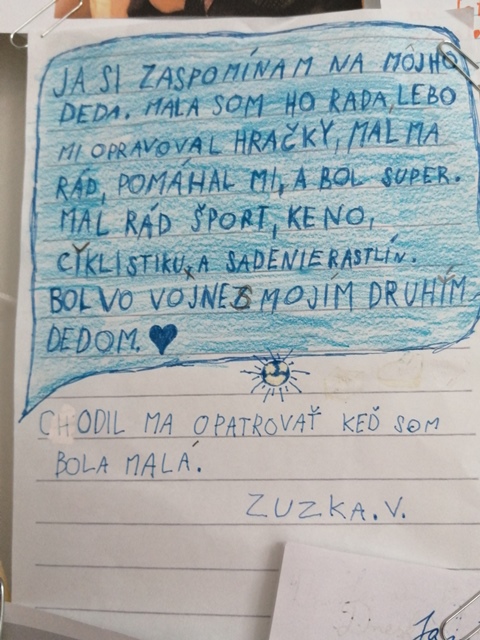 JA SI ZASPOMÍNAM NA MÔJHO
DEDA. MALA SOM HO RADA, LEBO
MI OPRAVOVAL HRAČKY, MAL MA
RÁD, POMÁHAL MI, A BOL SUPER.
MAL RÁD ŠPORT, KENO,
CYKLISTIKU, A SADENIE RASTLÍN.
BOL VO VOJNE S MOJÍM DRUHÝM
DEDOM. ♥
CHODIL MA OPATROVAŤ KEĎ SOM
BOLA MALÁ.
ZUZKA.V.